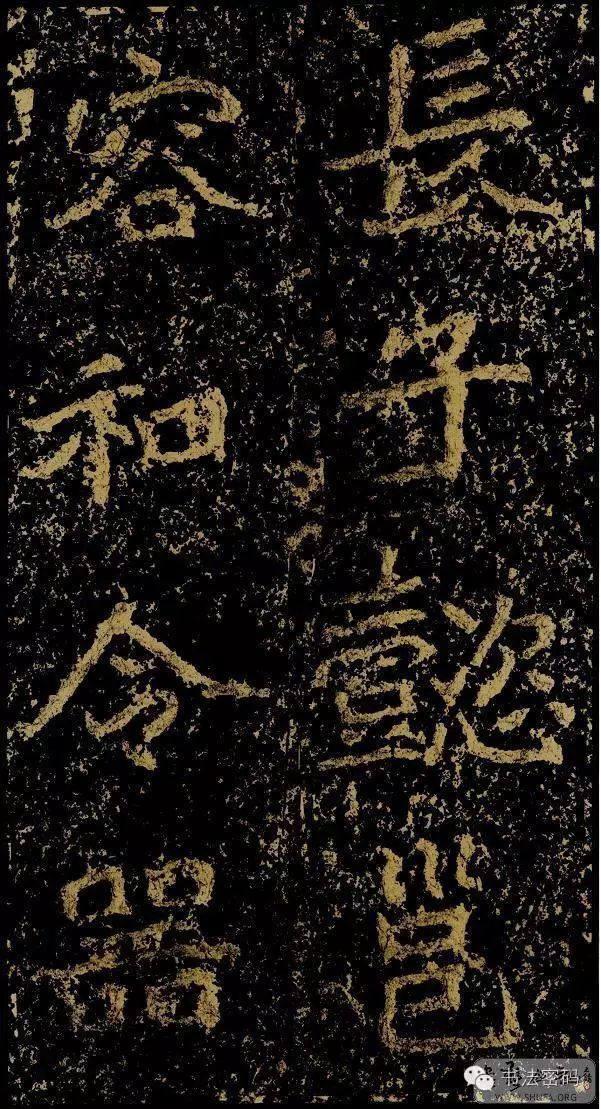 長子懿邕
容和令器
书法密码
WWW.SHUFA.ORG